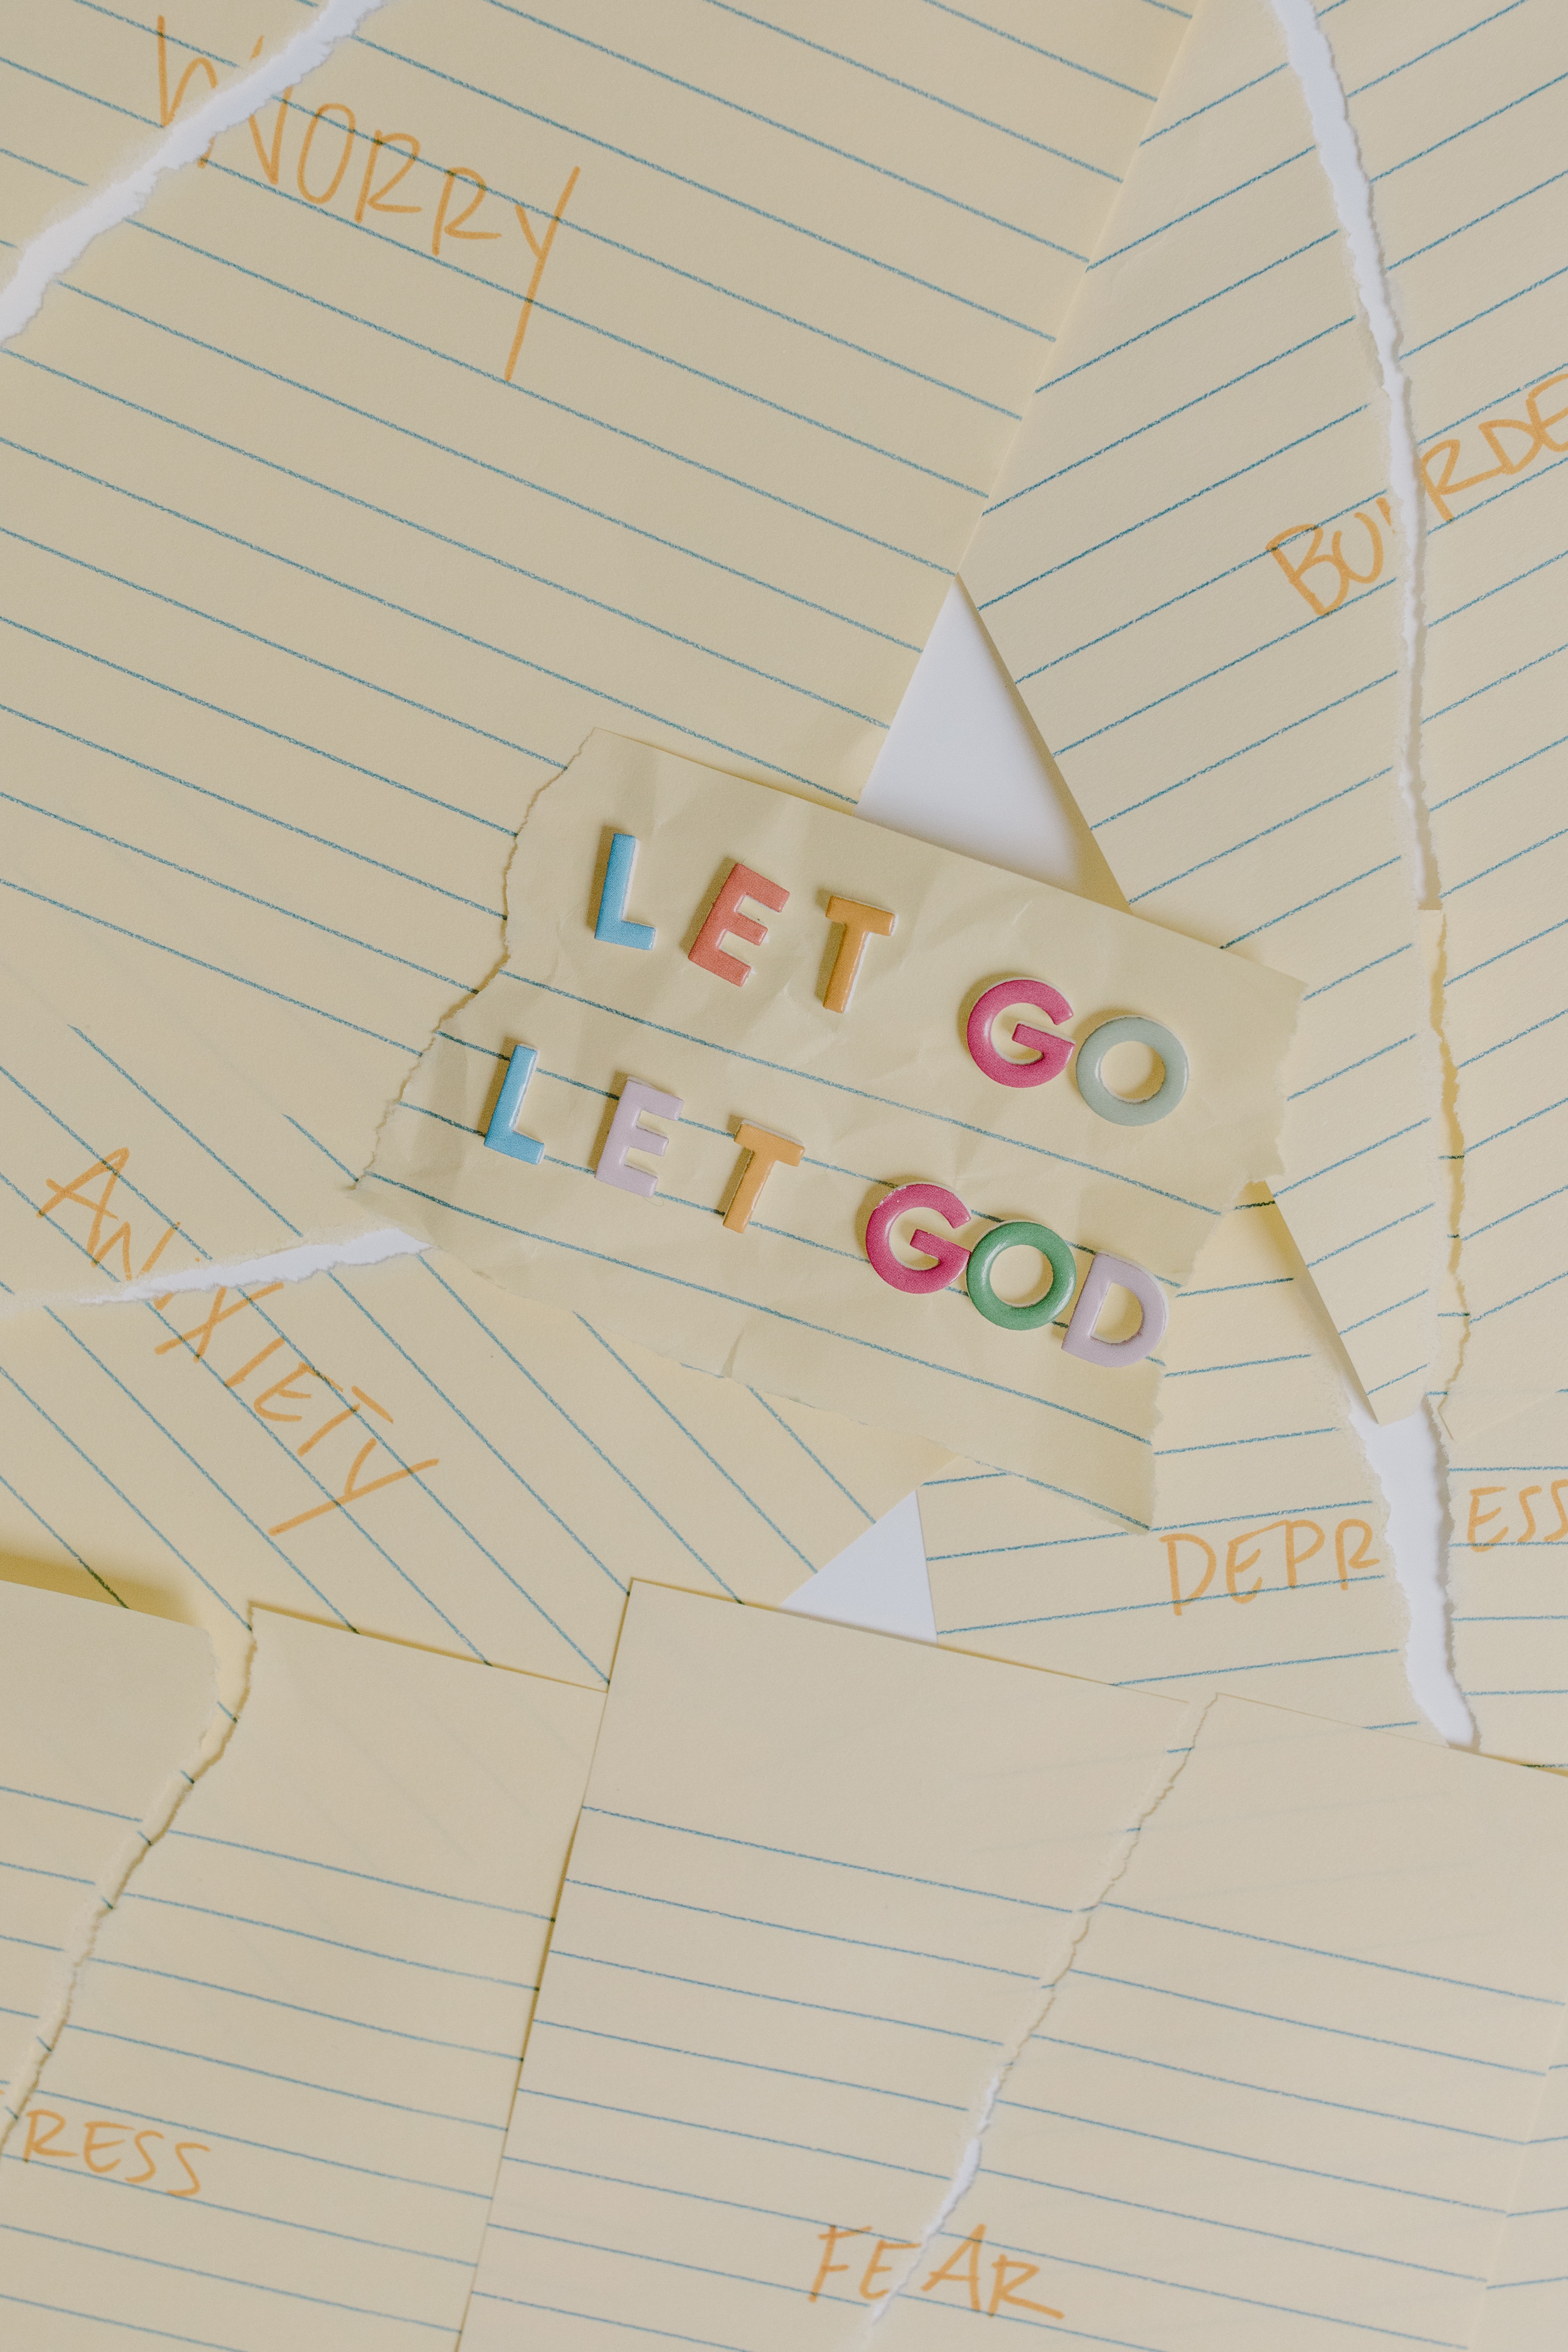 WORRY
BURDE
LET GO
LET GOD
ANXIETY
DEPRESS
RESS
FEAR